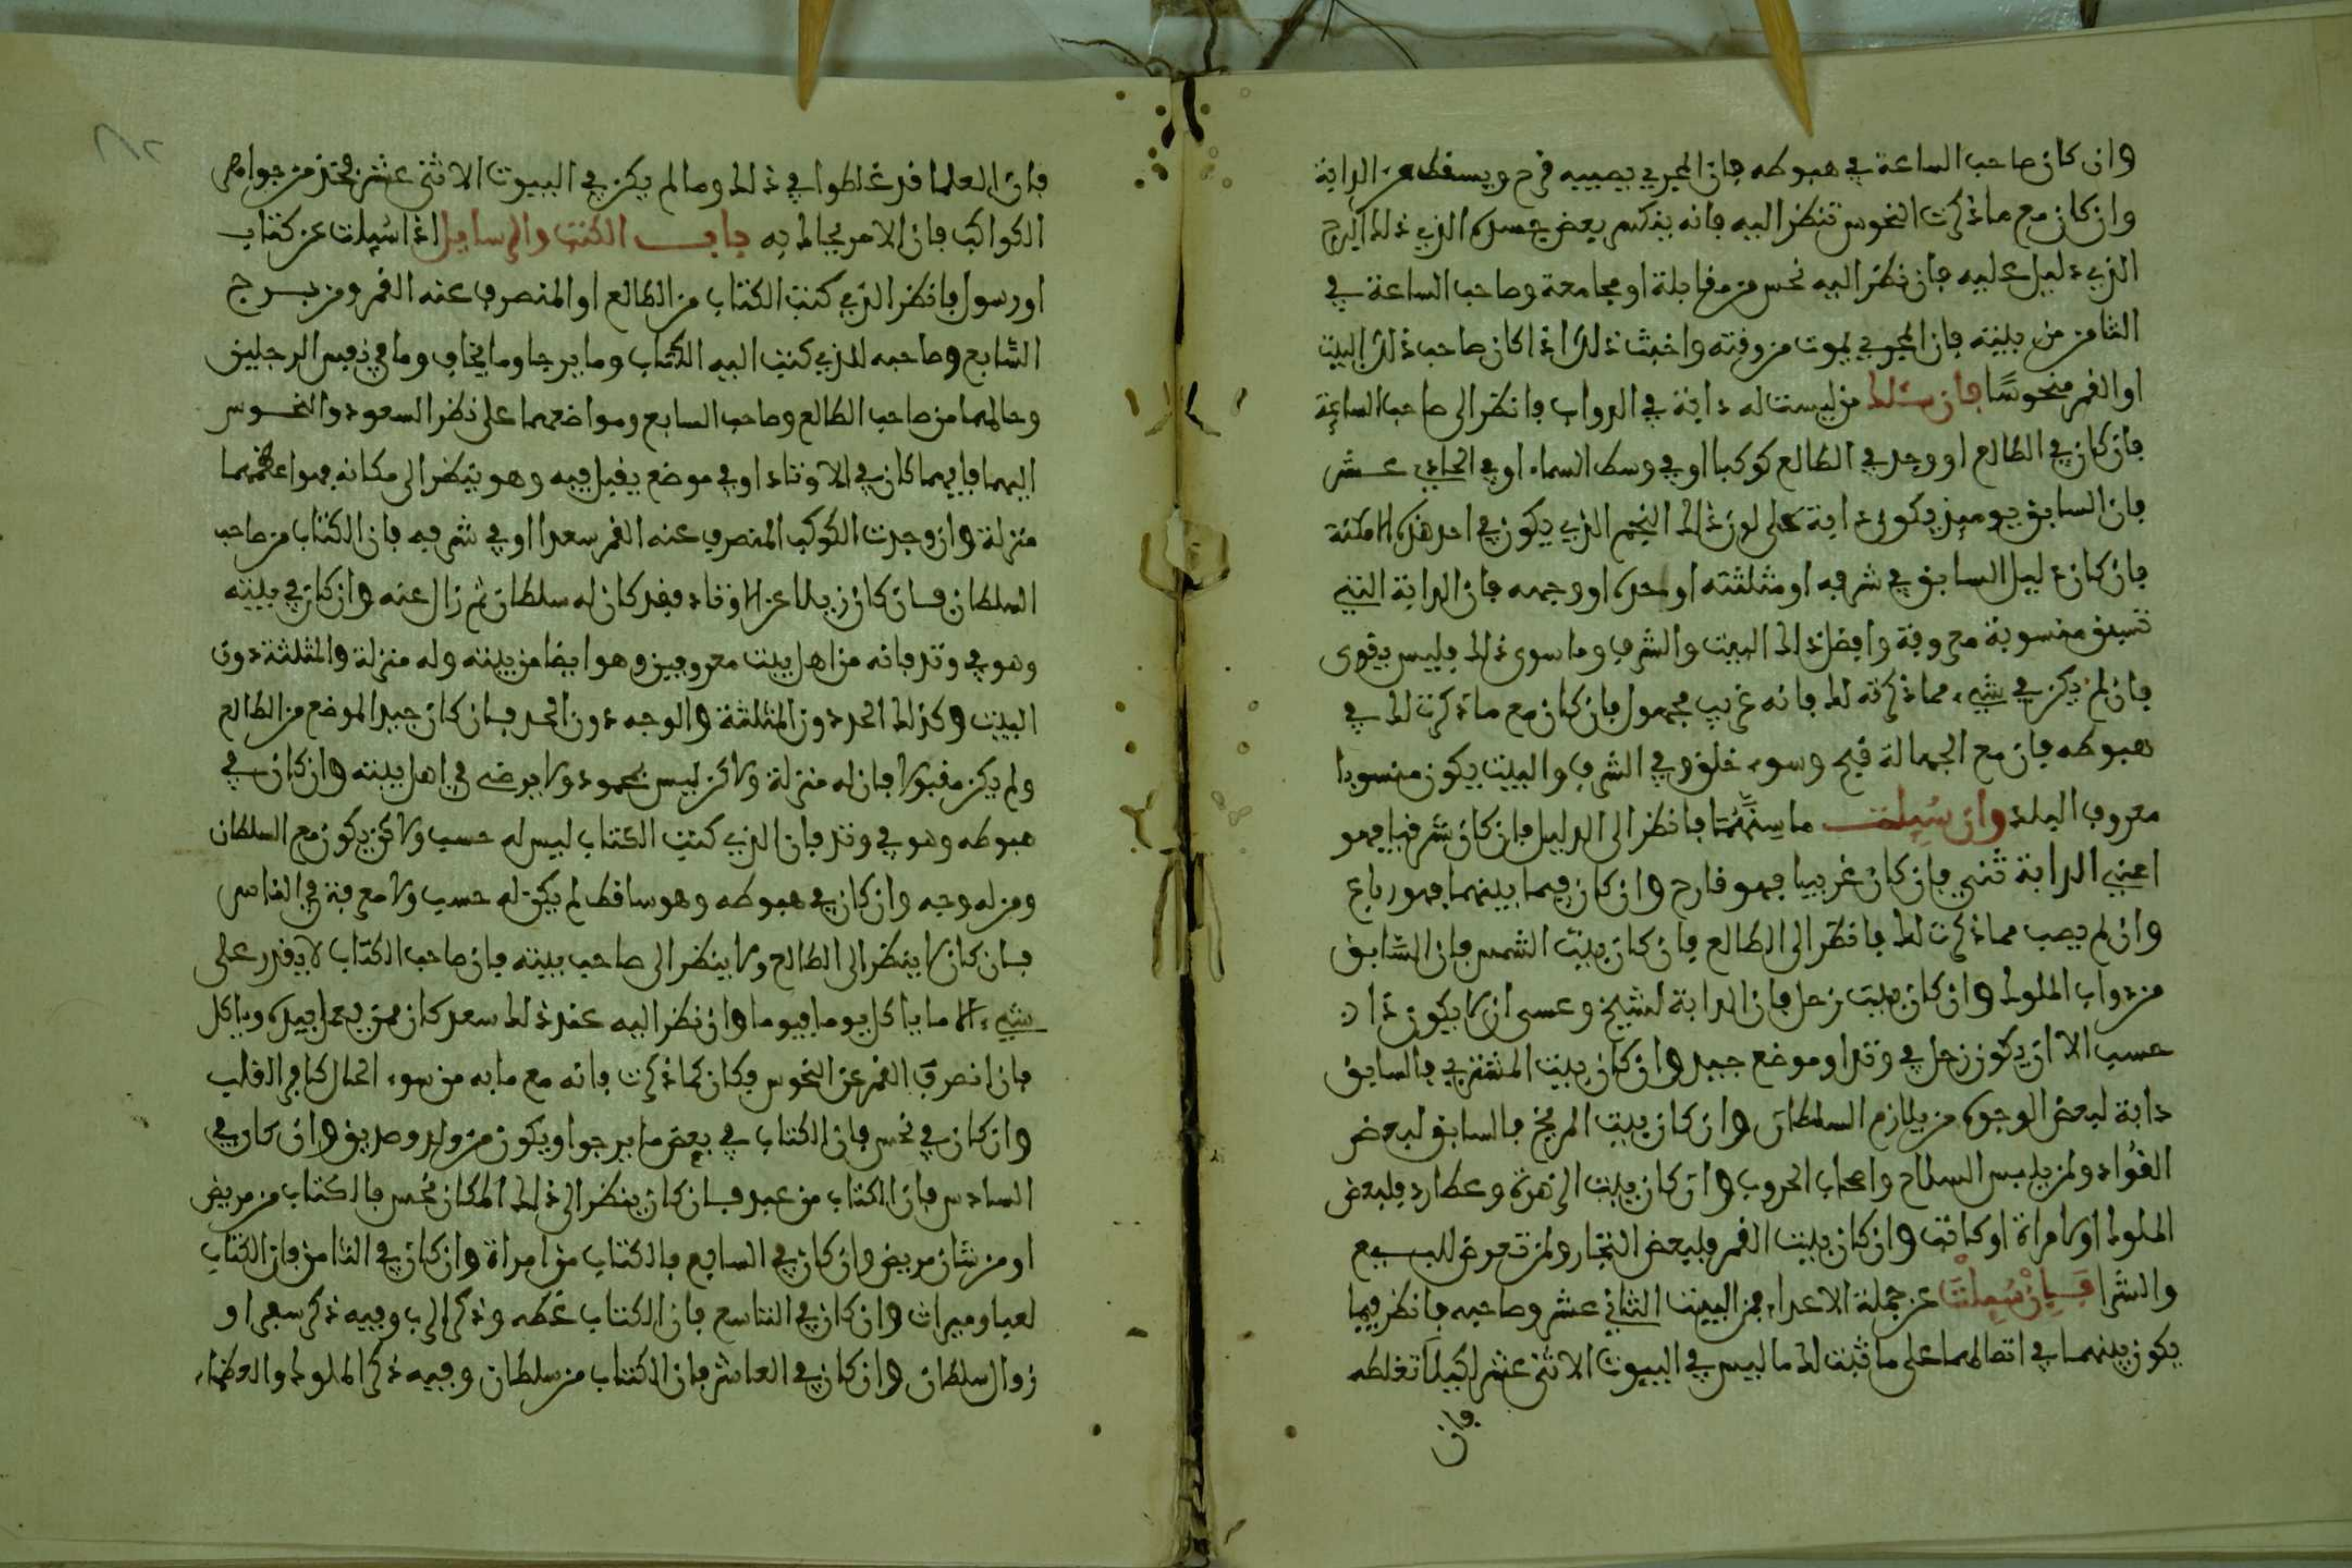 وان كان صاحب الساعة في هبوطه فان المجري يصيبه قرح ويسقط عن الدابة
وان كان مع ما ذكرت النحوس تنظر اليه فانه ينكسر بعض جسده الذي ذلك البرج
الذي دليل عليه فان نظر اليه نحس من مقابلة او مجامعة وصاحب الساعة في
الثامن من بيته فان المجري يموت من وقته واخبث ذلك اذا كان صاحب ذلك البيت
او القمر منحوسًا فان سئلك من ليست له دابة في الدواب فانظر الى صاحب الساعة
فان كان في الطالع او وجد في الطالع كوكبا او في وسط السماء او في الحادي عشر
فان السابق يوميذ يكون دابة على لون ذلك النجم الذي يكون في احد هذه الامكنة
فان كان دليل السابق في شرفه او مثلثته او لحده او وجهه فان الدابة التي
تسبق منسوبة معروفة وافضل ذلك البيت والشرف وما سوى ذلك فليس بقوى
فان لم يكن في شيء مما ذكرته لك فانه غريب مجهول فان كان مع ما ذكرت لك في
هبوطه فان مع الجهالة قبح وسوء خلق وفي الشرف والبيت يكون منسوبا
معروف البلد وان سُيلت ما سنهما فانظر الى الدليل فان كان شرقيا فهو
اعني الدابة ثني فان كان غربيا فهو قارح وان كان فيما بينهما فهو رباع
وان لم يصب مما ذكرت لك فانظر الى الطالع فان كان بيت الشمس فان السابق
من دواب الملوك وان كان بيت زحل فان الدابة لشيخ وعسى ان لا يكون ذا
حسب الا ان يكون زحل في وتد او موضع جيد وان كان بيت المشتري فالسابق
دابة لبعض الوجوه من يلازم السلطان وان كان بيت المريخ فالسابق لبعض
القُواد ولمن يلبس السلاح واصحاب الحروب وان كان بيت الزهرة وعطارد فلبعض
الملوك او لامراة او كاتب وان كان بيت القمر فلبعض التجار ولمن تعرض للبيع
والشرا فَإِنْ سُيِلْتَ عن جملة الاعداء فمن البيت الثاني عشر وصاحبه فانظر فيما
يكون بينهما في اتصالهما على ما ثبت لك ما ليس في البيوت الاثنى عشر لكيلا تغلطه
فان
فان العلما قد غلطوا في ذلك وما لم يكن في البيوت الاثنى عشر فخذ من جواهر
الكواكب فان الامر يجالك به باب الكتب والرسايل اذا سُيلت عن كتاب
او رسول فانظر الذي كتب الكتاب من الطالع او المنصرف عنه القمر ومن برج
السّابع وصاحبه للذي كتب اليه الكتاب وما يرجا وما يخاف وما في نفس الرجلين
وحالهما من صاحب الطالع وصاحب السابع ومواضعهما على نظر السعود والنحوس
اليهما فايهما كان في الاوتاد او في موضع يقبل فيه وهو ينظر الى مكانه فهو اعظمهما
منزلة وان وجدت الكوكب المنصرف عنه القمر سعدا او في شرفه فان الكتاب من صاحب
السلطان فان كان زيلا عن الاوتاد فقد كان له سلطان ثم زال عنه وان كان في بيته
وهو في وتد فانه من اهل بيت معروفين وهو ايضا من بيته وله منزلة والمثلثة دون
البيت وكذلك الحد دون المثلثة والوجه دون الحد فان كان جيد الموضع من الطالع
ولم يكن مقبولا فان له منزلة ولاكن ليس بمحمود ولا يرضى في اهل بيته وان كان في
هبوطه وهو في وتد فان الذي كتب الكتاب ليس له حسب ولاكن يكون مع السلطان
ومن له وجه وان كان في هبوطه وهو ساقط لم يكن له حسب ولا معرفة في الناس
فان كان لا ينظر الى الطالع ولا ينظر الى صاحب بيته فان صاحب الكتاب لا يقدر على
شيء الا ما ياكل يوما فيوما وان نظر اليه عند ذلك سعد كان ممن يعمل بيده وياكل
فان انصرف القمر عن النحوس فكان كما ذكرت فانه مع ما به من سوء الحال كافر القلب
وان كان في نحس فان الكتاب في بعض ما يرجوا ويكون من ولد وصديق وان كان في
السادس فان الكتاب من عبد فان كان ينظر الى ذلك المكان نحس فالكتاب من مريض
او من شان مريض وان كان في السابع فالكتاب من امراة وان كان في الثامن فان الكتاب
لعيا وميراث وان كان في التاسع فان الكتاب عظه وذكر الرب وفيه ذكر سفر او
زوال سلطان وان كان في العاشر فان الكتاب من سلطان وفيه ذكر الملوك والعظماء